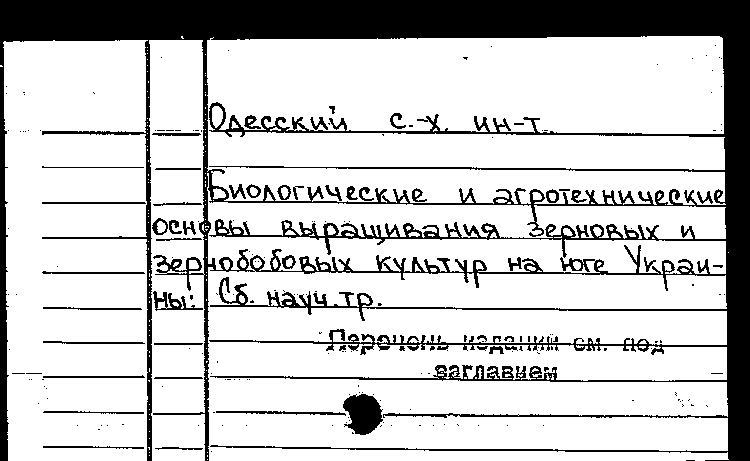 Одесский с.-х. ин-т.
Биологические и агротехнические
основы выращивания зерновых и
зернобобовых культур на юге Украи-
ны: Сб. науч. тр.
Перечень изданий см. под
заглавием